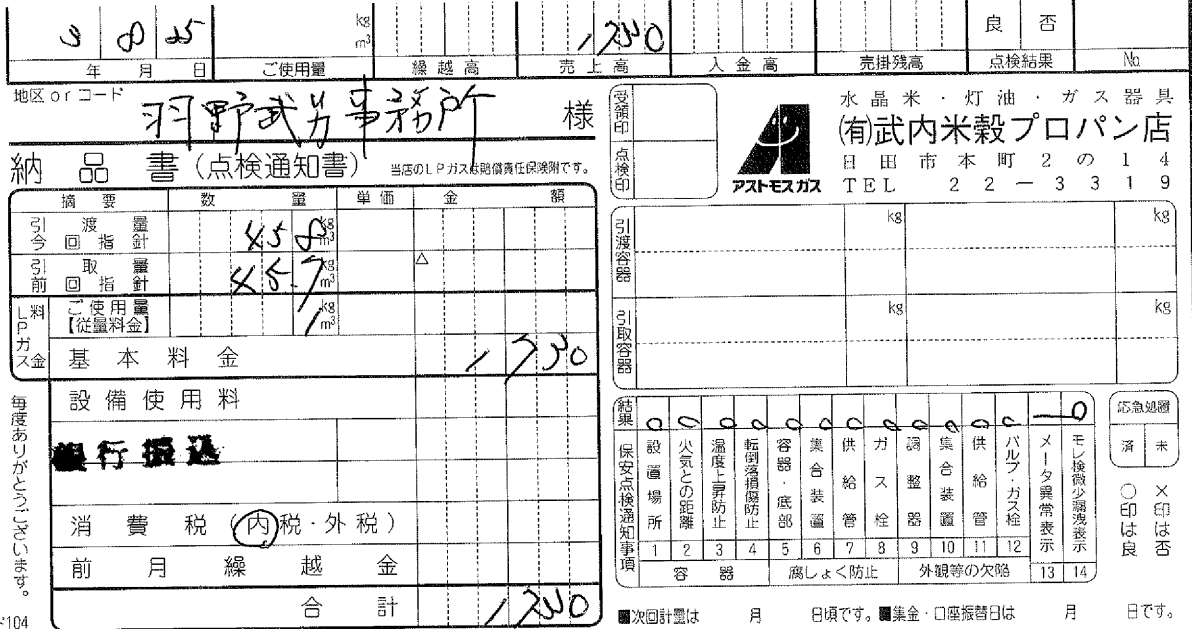 3 8 25 kg m³ 1,730 良 否
年 月 日 ご使用量 繰越高 売上高 入金高 売掛残高 点検結果 No.
地区 or コード
羽野武男事務所 様
納品書(点検通知書) 当店のLPガスは賠償責任保険附です。
受領印
点検印
アストモスガス
水晶米・灯油・ガス器具
(有)武内米穀プロパン店
日田市本町2の14
TEL 22-3319
摘要 数量 単価 金額
引渡量 今回指針 458 kg m³
引取量 前回指針 457 kg m³ △
LPガス料金
ご使用量【従量料金】 1 kg m³
基本料金 1,730
設備使用料
銀行振込
消費税(内税・外税)
前月繰越金
合計 1,730
毎度ありがとうございます。
104
引渡容器 kg kg
引取容器 kg kg
結果 0 0 0 0 0 0 0 0 0 0 0 0 — 0
保安点検通知事項
設置場所 火気との距離 温度上昇防止 転倒落損傷防止 容器・底部 集合装置 供給管 ガス栓 調整器 集合装置 供給管 バルブ・ガス栓 メータ異常表示 モレ検微少漏洩表示
1 2 3 4 5 6 7 8 9 10 11 12 13 14
容器 腐しょく防止 外観等の欠陥
応急処置
済 未
○印は良
×印は否
■次回計量は 月 日頃です。■集金・口座振替日は 月 日です。